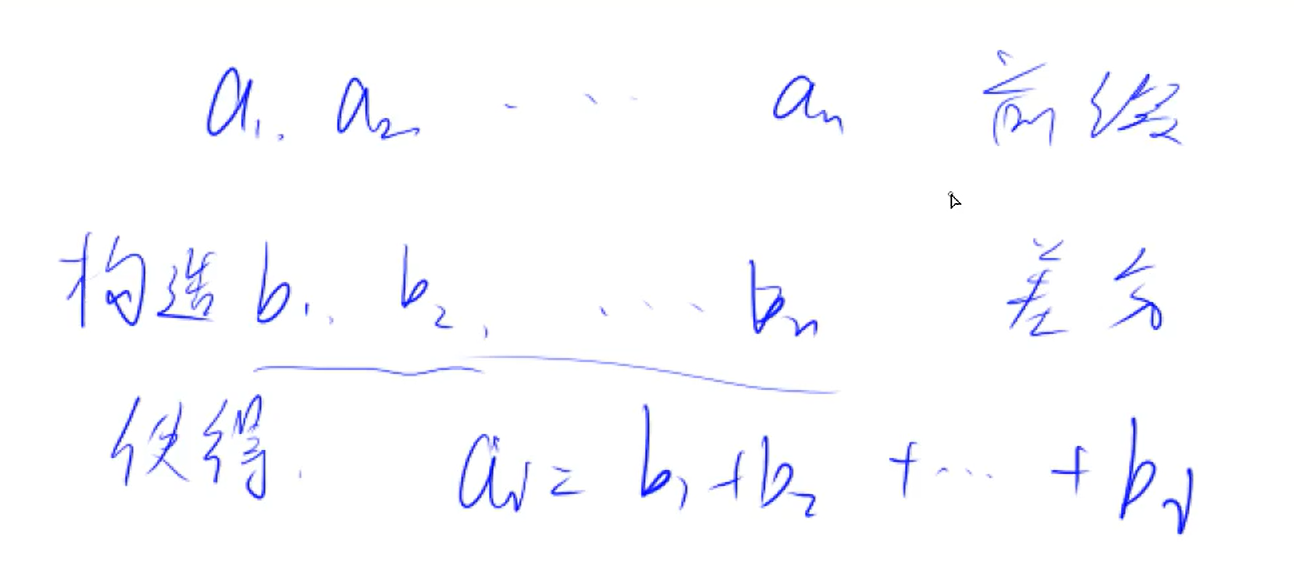 a₁. a₂ ... aₙ 前缀
构造 b₁. b₂, ... bₙ 差分
使得. aᵢ = b₁ + b₂ + ... + bᵢ